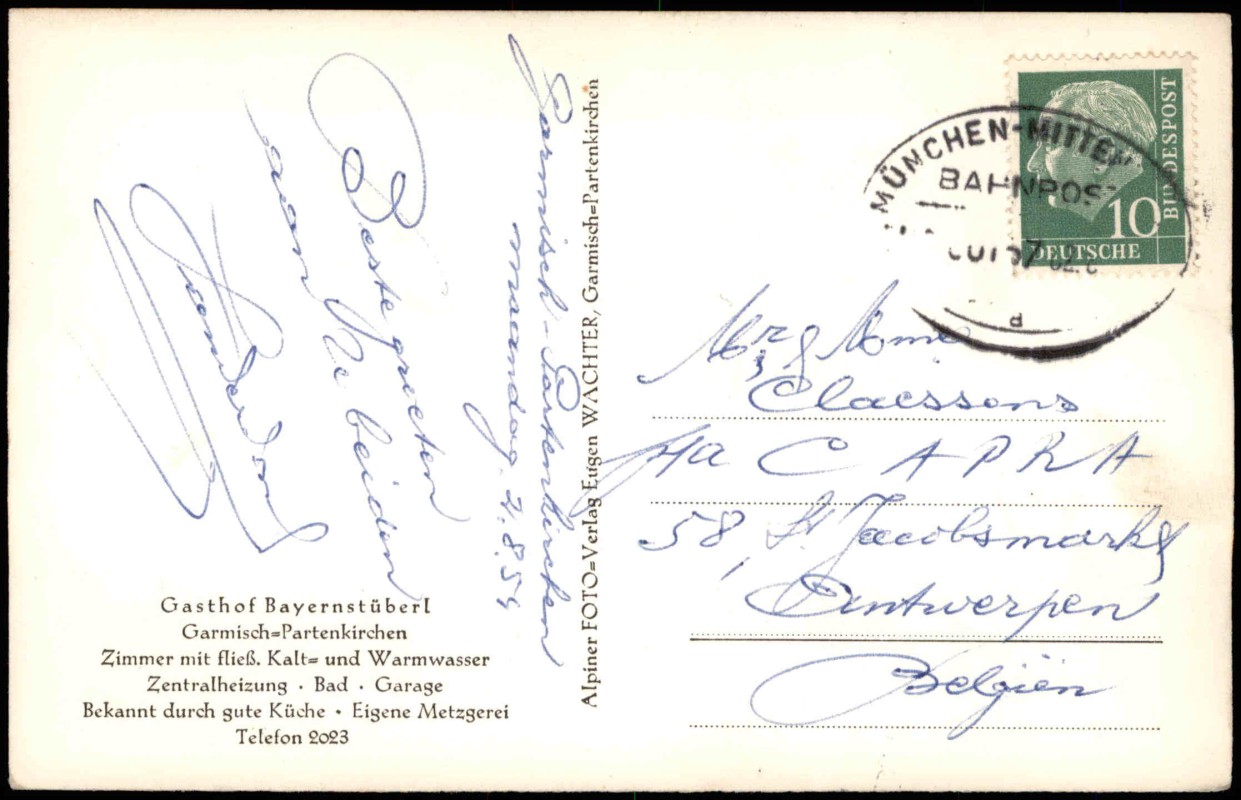 Garmisch-Partenkirchen
maandag 2.8.54
Beste groeten
aan U beiden
Gasthof Bayernstüberl
Garmisch=Partenkirchen
Zimmer mit fließ. Kalt= und Warmwasser
Zentralheizung · Bad · Garage
Bekannt durch gute Küche · Eigene Metzgerei
Telefon 2023
Alpiner FOTO=Verlag Eugen WACHTER, Garmisch=Partenkirchen
MÜNCHEN-MITTEN
BAHNPOST
d
10
DEUTSCHE
BUNDESPOST
Mr & Mme
Claessens
p/a CAPRA
58, St. Jacobsmarkt
Antwerpen
België